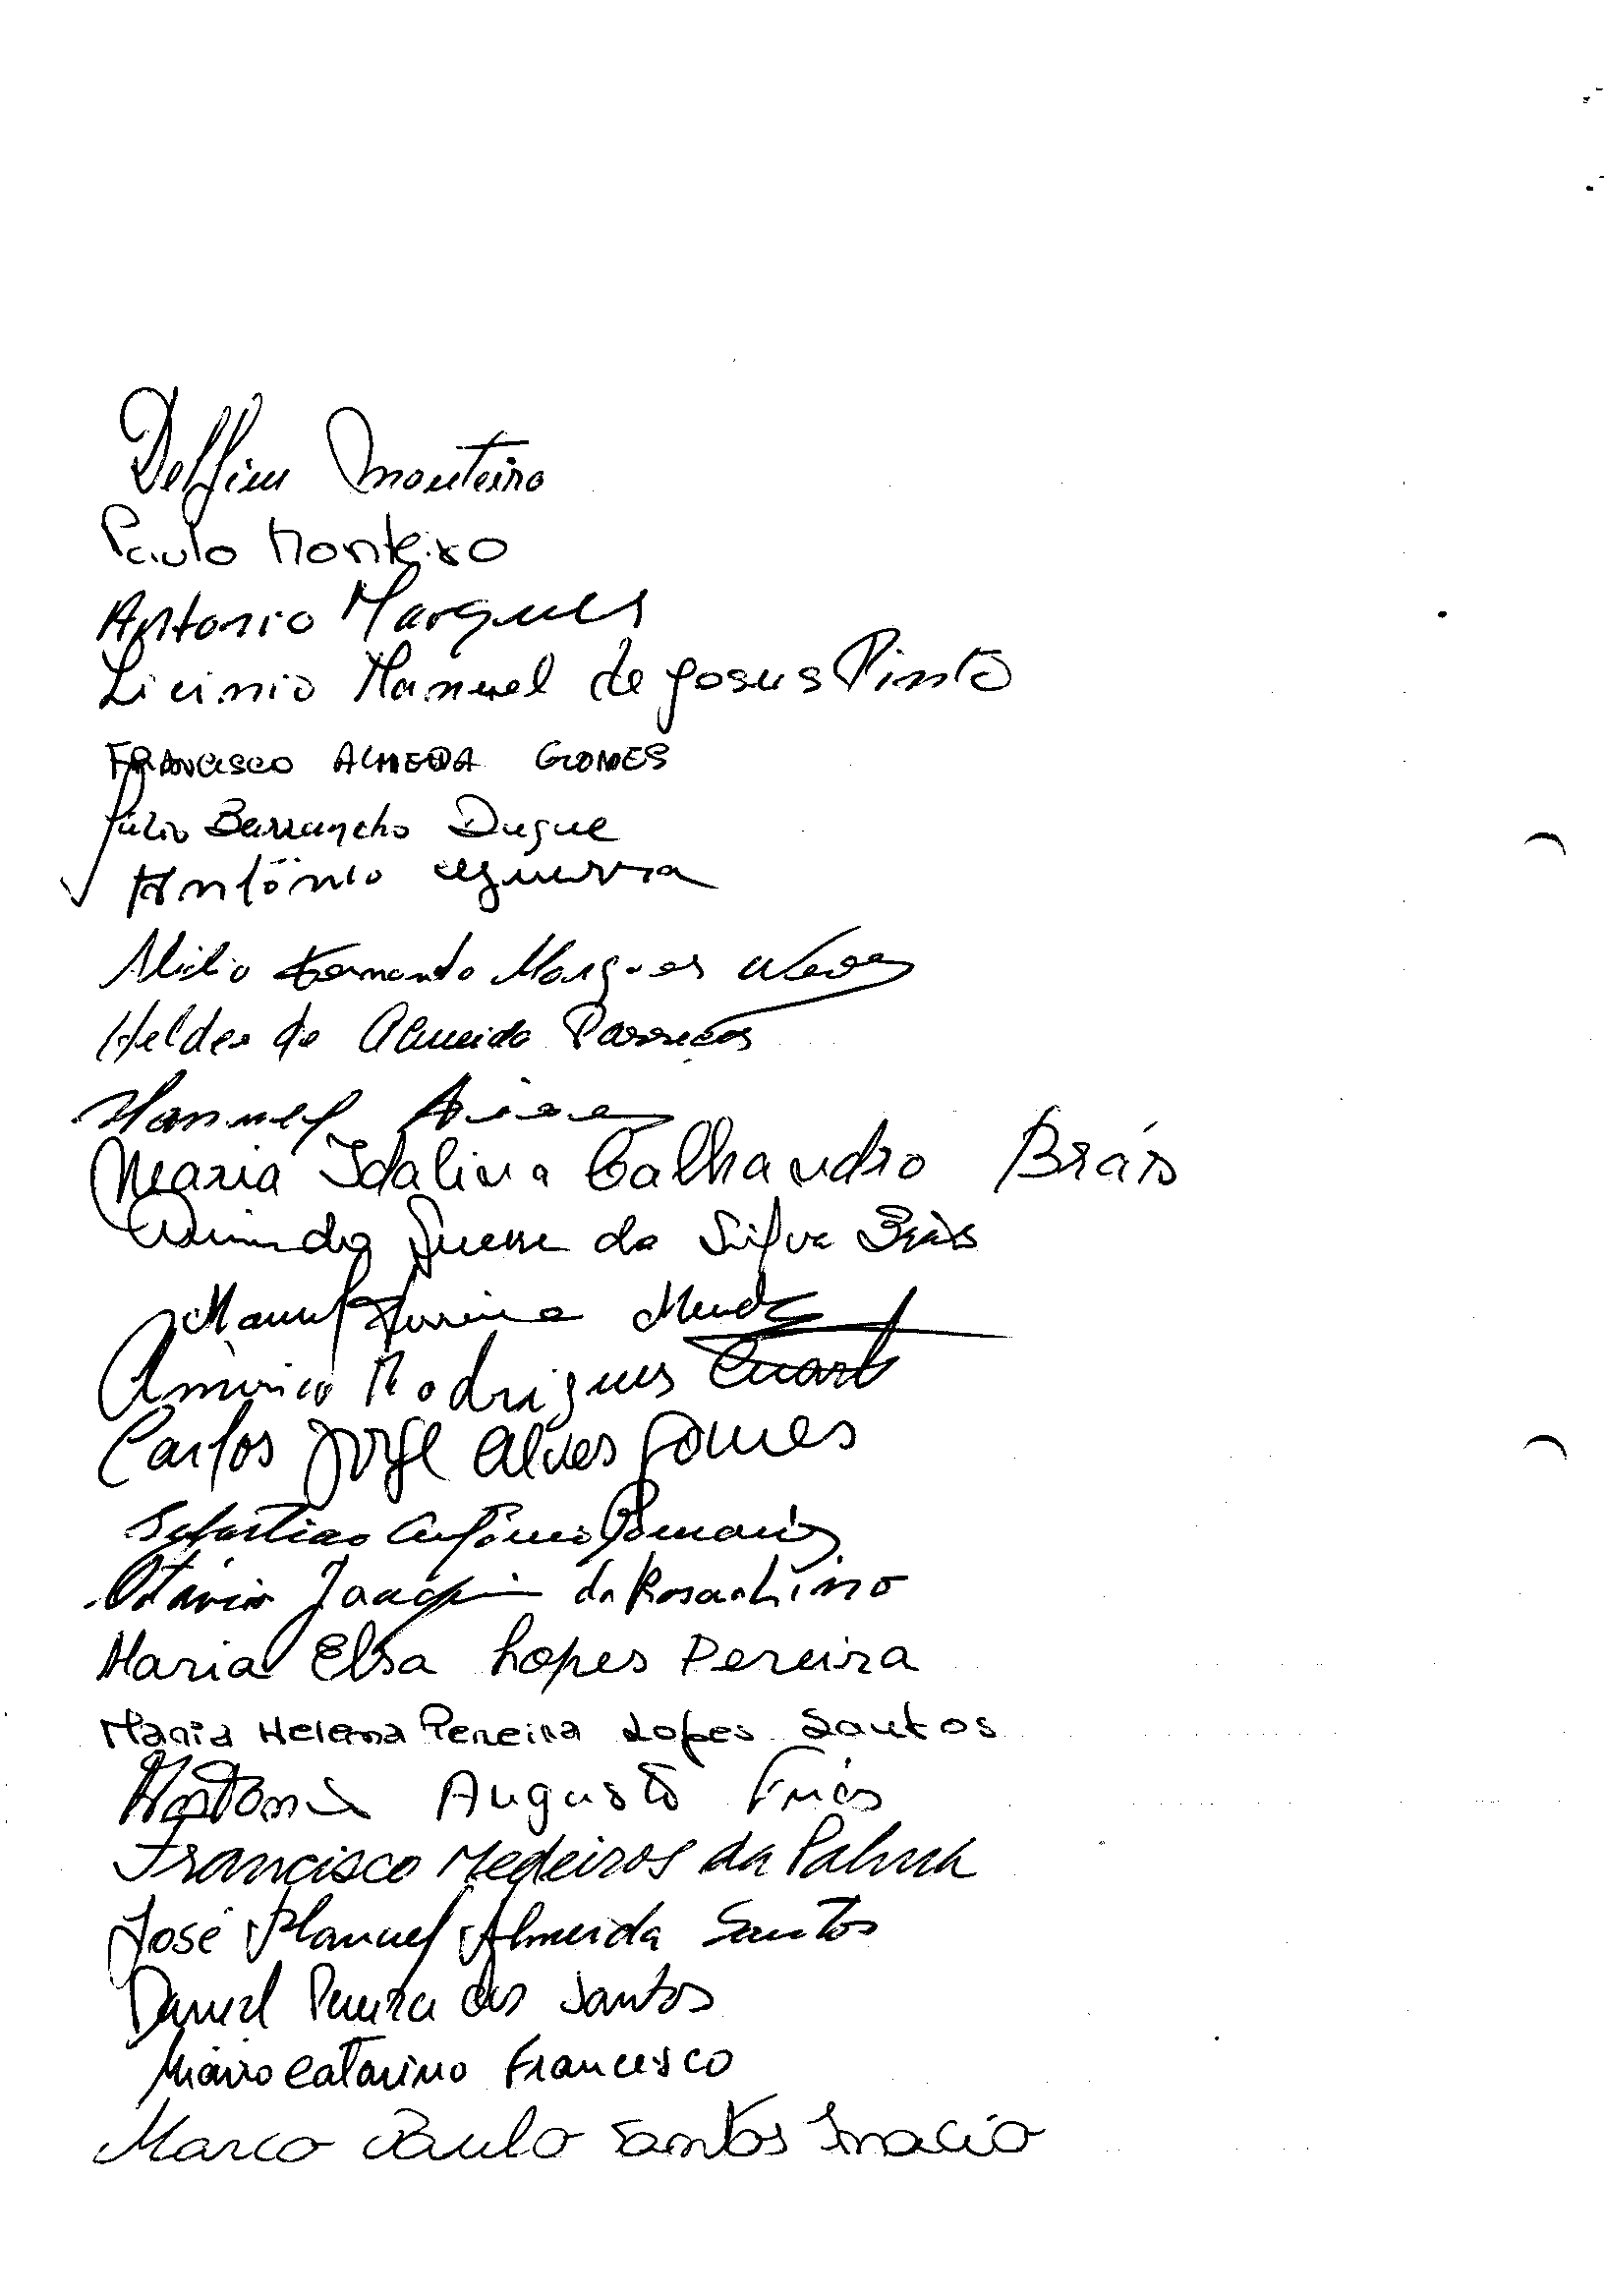 Delfim Monteiro
Paulo Monteiro
Antonio Marques
Licinio Manuel de Jesus Pinto
FRANCISCO ALMEIDA GOMES
Júlio Barrancho Duque
António Guerra
Fernando Marques Neves
Helder de Almeida
Manuel
Maria Idalina Calhandro Brás
da Silva Brás
Manuel Ferreira Mendes
Américo Rodrigues Duarte
Carlos Jorge Alves Gomes
Sebastiao António Romario
Otávio Joaquim
Maria Elsa Lopes Pereira
Maria Helena Pereira Lopes Santos
Antonio Augusto Frias
Francisco Medeiros da Palma
José Manuel Almeida Santos
Daniel Pereira dos Santos
Mário Catarino Francisco
Marco Paulo Santos Inacio